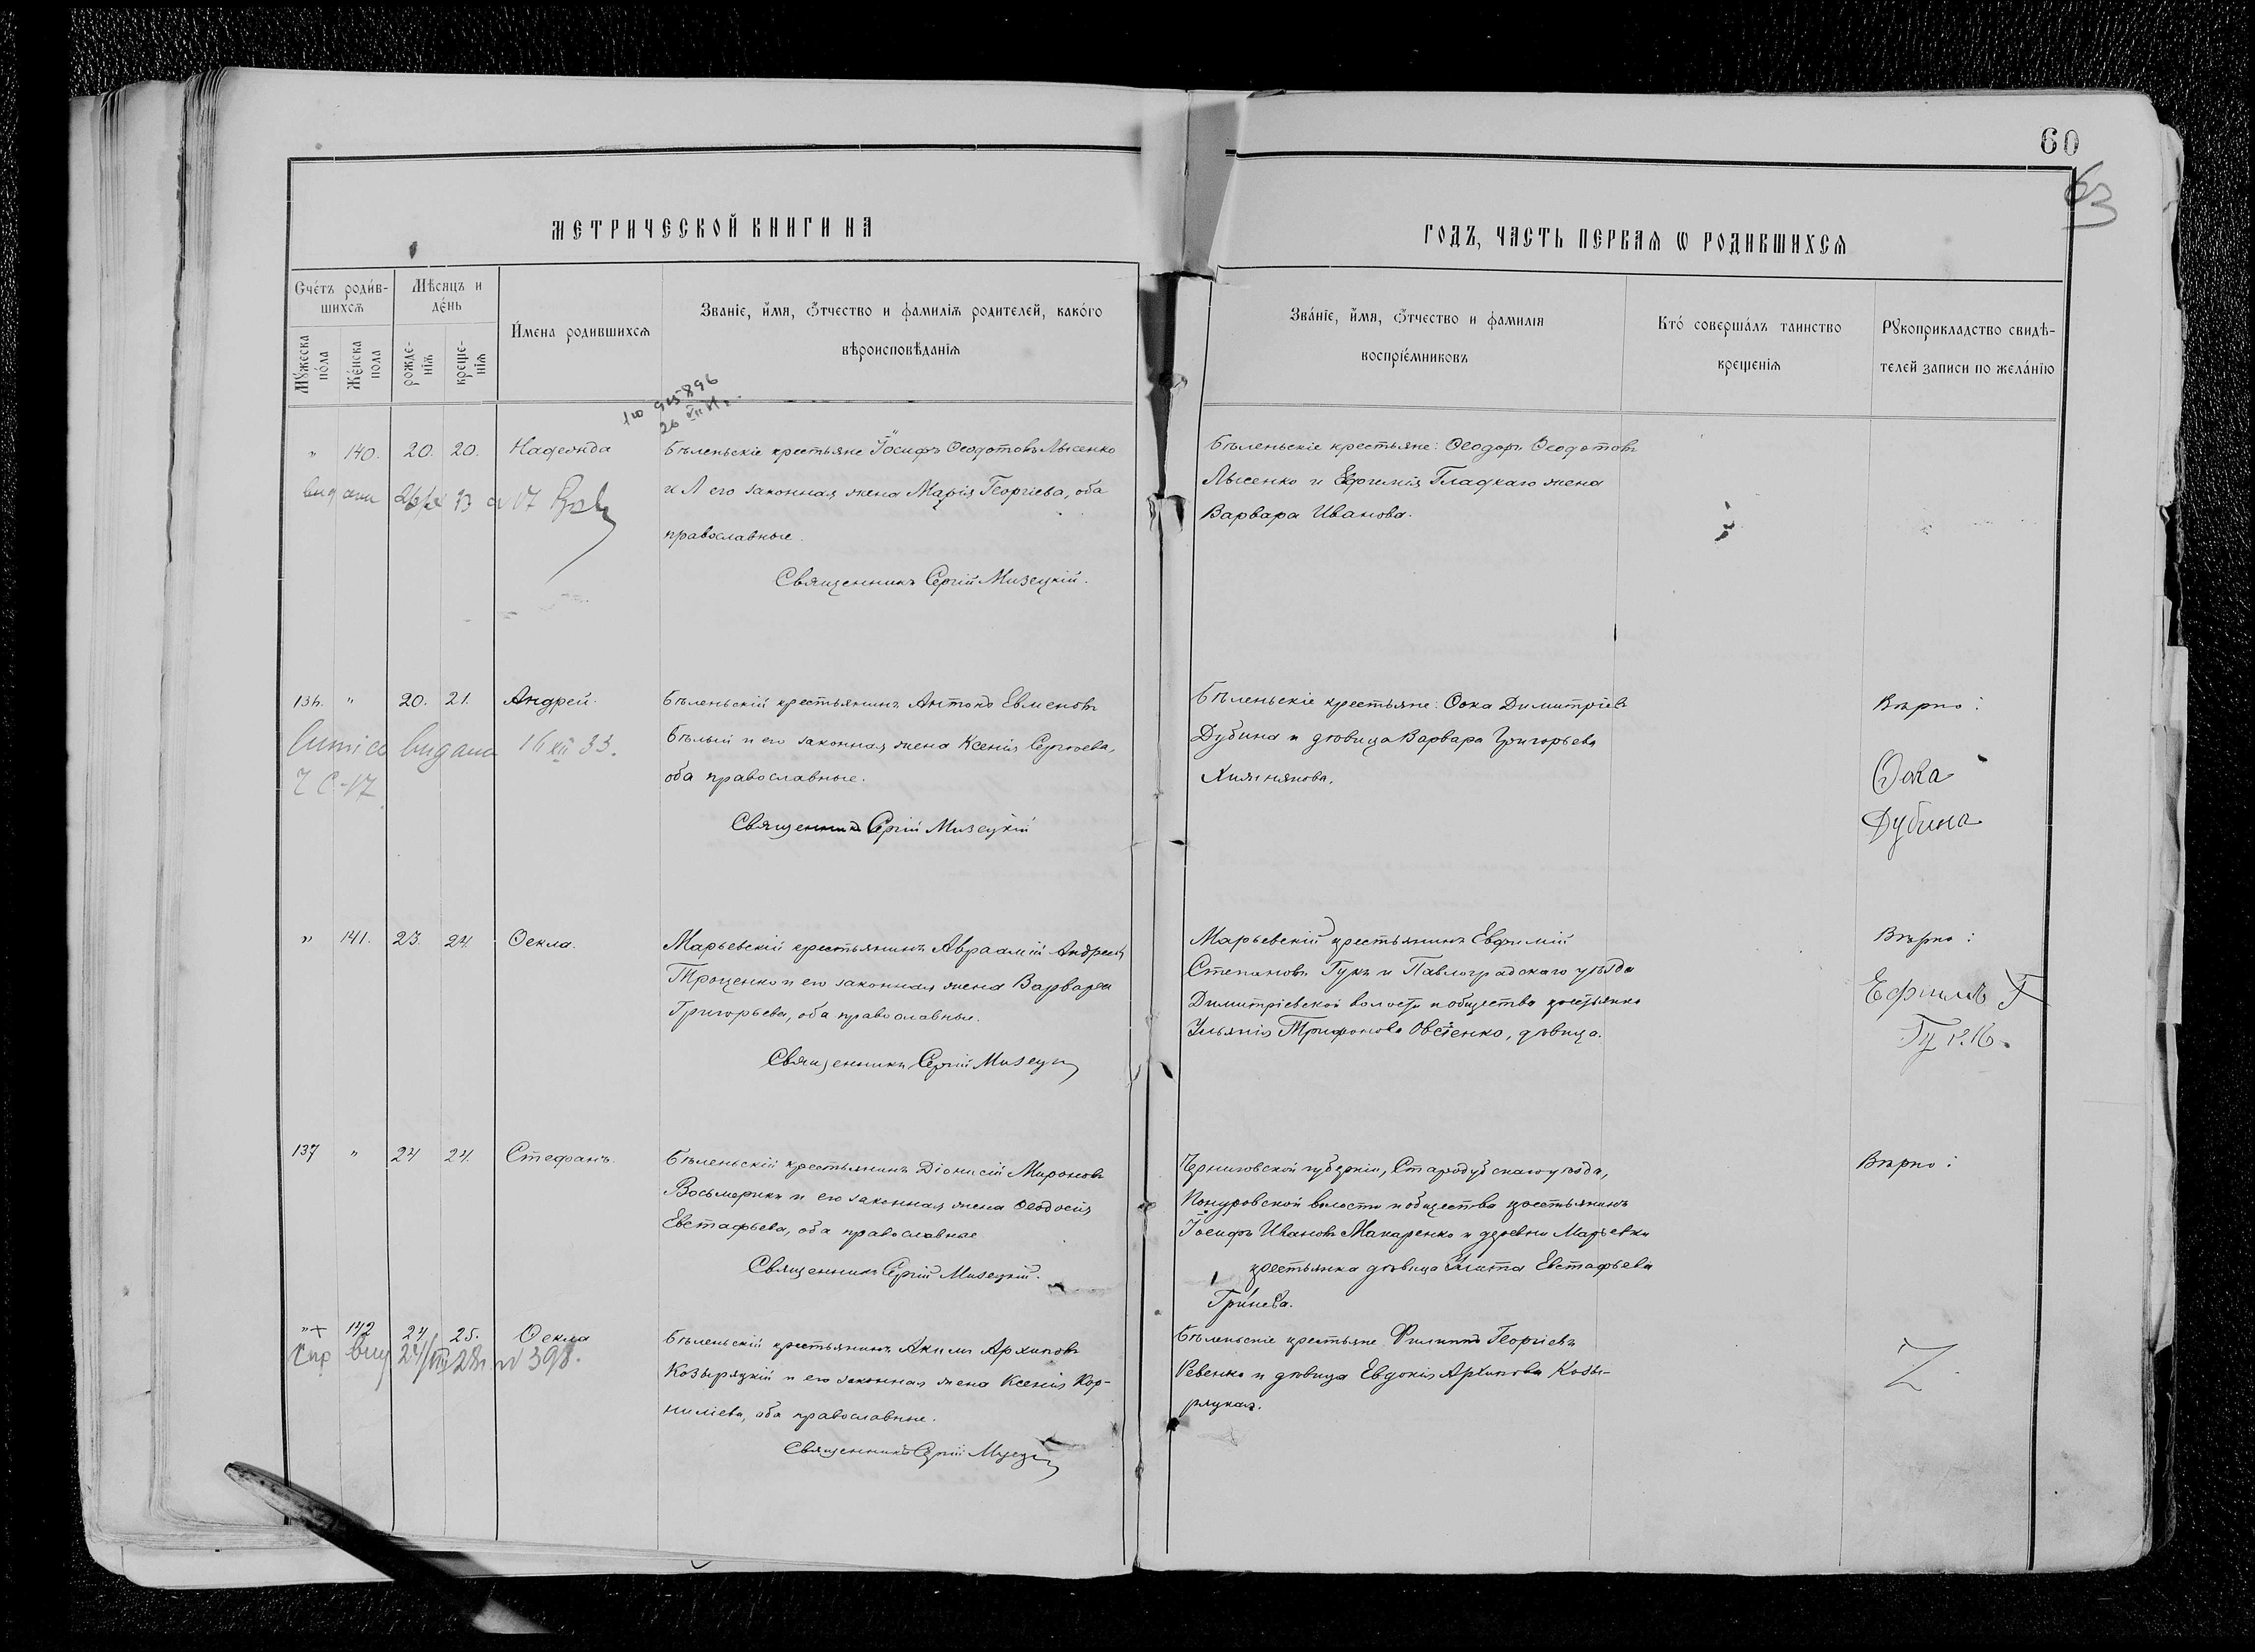 60
63
МЕТРИЧЕСКОЙ КНИГИ НА
ГОДЪ, ЧАСТЬ ПЕРВАѦ Ѡ РОДИВШИХСѦ
Счётъ роди́в-
шихсѧ
Му́жеска по́ла
Же́нска пола
Мѣсяцъ и
де́нь
рожде-
нїѧ
креще-
нїѧ
И́мена родившихсѧ
Званїе, и́мя, ѻ҆́тчество и фамилїѧ родителей, како́го
вѣроисповѣданїѧ
Зва́нїе, и́мя, ѻ҆́тчество и фамилїя
воспрїе́мниковъ
Кто́ соверша́лъ таинство
крещенїѧ
Рꙋкоприкладство свидѣ-
телей записи по жела́нїю
" 140. 20. 20. Надежда
Бѣленьскіе крестьяне Іосифъ Ѳеодотовъ Лысенко
и его законная жена Марія Георгіева, оба
православные.
Священникъ Сергій Мизецкій.
Бѣленьскіе крестьяне: Ѳеодоръ Ѳеодотовъ
Лысенко и Евфимія Гладкаго жена
Варвара Иванова.
136. " 20. 21. Андрей.
16 XII 33.
Бѣленьскій крестьянинъ Антоній Евменовъ
Бѣлый и его законная жена Ксенія Сергѣева,
оба православные.
Священникъ Сергій Мизецкій
Бѣленьскіе крестьяне: Ѳока Димитріевъ
Дубина и дѣвица Варвара Григорьева
Вѣрно:
Ѳока
Дубина
" 141. 23. 24. Ѳекла.
Марьевскій крестьянинъ Авраамій Андреевъ
Троценко и его законная жена Варвара
Григорьева, оба православные.
Священникъ Сергій Мизецкій
Марьевскій крестьянинъ Евфимій
Степановъ Гукъ и Павлоградскаго уѣзда
Димитріевской волости и общества крестьянка
Ульянія Трифонова Овсіенко, дѣвица.
Вѣрно:
137 " 24 24. Стефанъ.
Бѣленьскій крестьянинъ Діонисій Мироновъ
Восьмерикъ и его законная жена Ѳеодосія
Евстафьева, оба православные
Священникъ Сергій Мизецкій.
Черниговской губерніи, Стародубскаго уѣзда,
Понуровской волости и общества крестьянинъ
Іосифъ Ивановъ Макаренко и деревни Марьевки
крестьянка дѣвица Улита Евстафьева
Гринева.
Вѣрно:
"+ 142 24 25. Ѳекла
Бѣленьскій крестьянинъ Акимъ Архиповъ
Козыряцкій и его законная жена Ксенія Кор-
ниліева, оба православные.
Священникъ Сергій Мизецкій
Бѣленьскіе крестьяне Филиппъ Георгіевъ
Ревенко и дѣвица Евдокія Архипова Козы-
ряцкая.